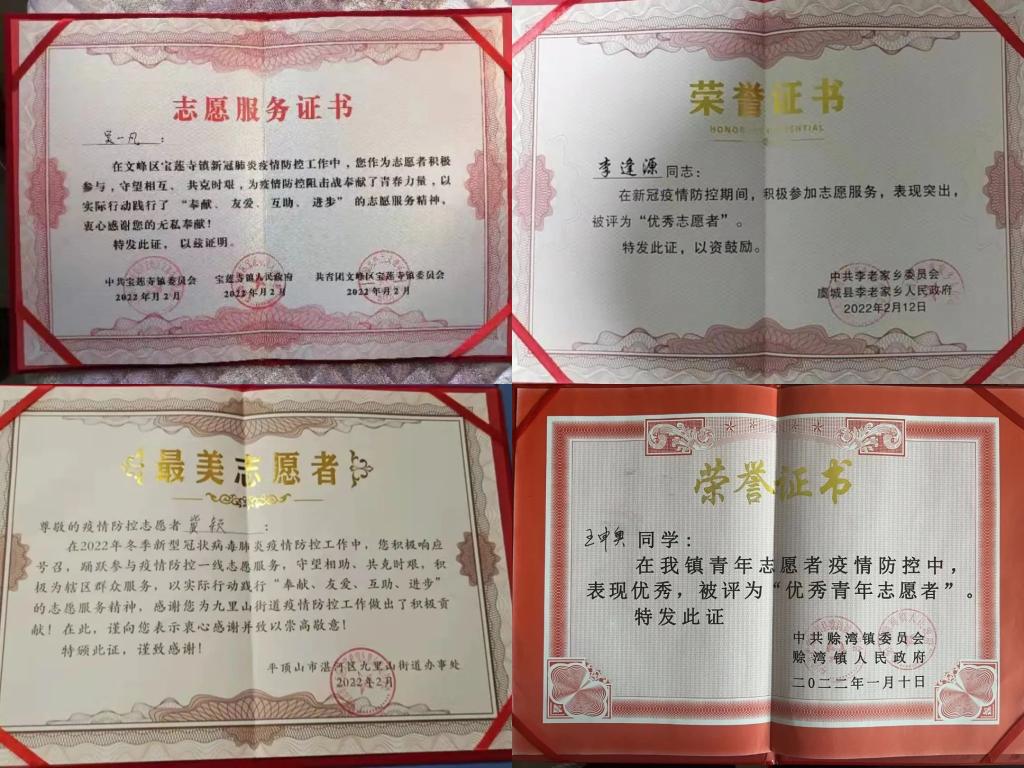 志愿服务证书
吴一凡：
在文峰区宝莲寺镇新冠肺炎疫情防控工作中，您作为志愿者积极
参与，守望相互、共克时艰，为疫情防控阻击战奉献了青春力量，以
实际行动践行了“奉献、友爱、互助、进步”的志愿服务精神，
衷心感谢您的无私奉献！
特发此证，以兹证明。
中共宝莲寺镇委员会 宝莲寺镇人民政府 共青团文峰区宝莲寺镇委员会
2022年2月 2022年2月 2022年2月
荣誉证书
李逢源同志：
在新冠疫情防控期间，积极参加志愿服务，表现突出，
被评为“优秀志愿者”。
特发此证，以资鼓励。
中共李老家乡委员会
虞城县李老家乡人民政府
2022年2月12日
最美志愿者
尊敬的疫情防控志愿者 黄颖：
在2022年冬季新型冠状病毒肺炎疫情防控工作中，您积极响应
号召，踊跃参与疫情防控一线志愿服务，守望相助、共克时艰，积
极为辖区群众服务，以实际行动践行“奉献、友爱、互助、进步”
的志愿服务精神，感谢您为九里山街道疫情防控工作做出了积极贡
献！在此，谨向您表示衷心感谢并致以崇高敬意！
特颁此证，谨致感谢！
平顶山市湛河区九里山街道办事处
2022年2月
荣誉证书
王申奥同学：
在我镇青年志愿者疫情防控中，
表现优秀，被评为“优秀青年志愿者”。
特发此证
中共赊湾镇委员会
赊湾镇人民政府
二〇二二年一月十日